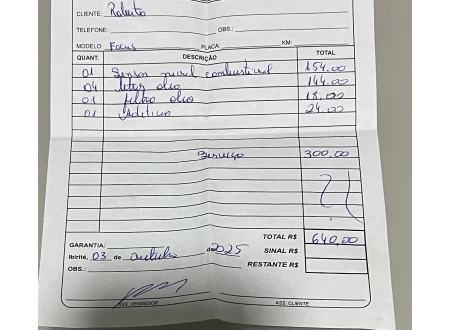 CLIENTE: Roberto
TELEFONE: OBS.:
MODELO Focus PLACA: KM:
QUANT. DESCRIÇÃO TOTAL
01 Sensor nivel combustivel 154,00
04 litros oleo 144,00
01 filtro oleo 18,00
01 Aditivo 24,00
Serviço 300,00
TOTAL R$ 640,00
GARANTIA:
Ibirité, 03 de outubro de 2025 SINAL R$
OBS.: RESTANTE R$
ASS. VENDEDOR ASS. CLIENTE